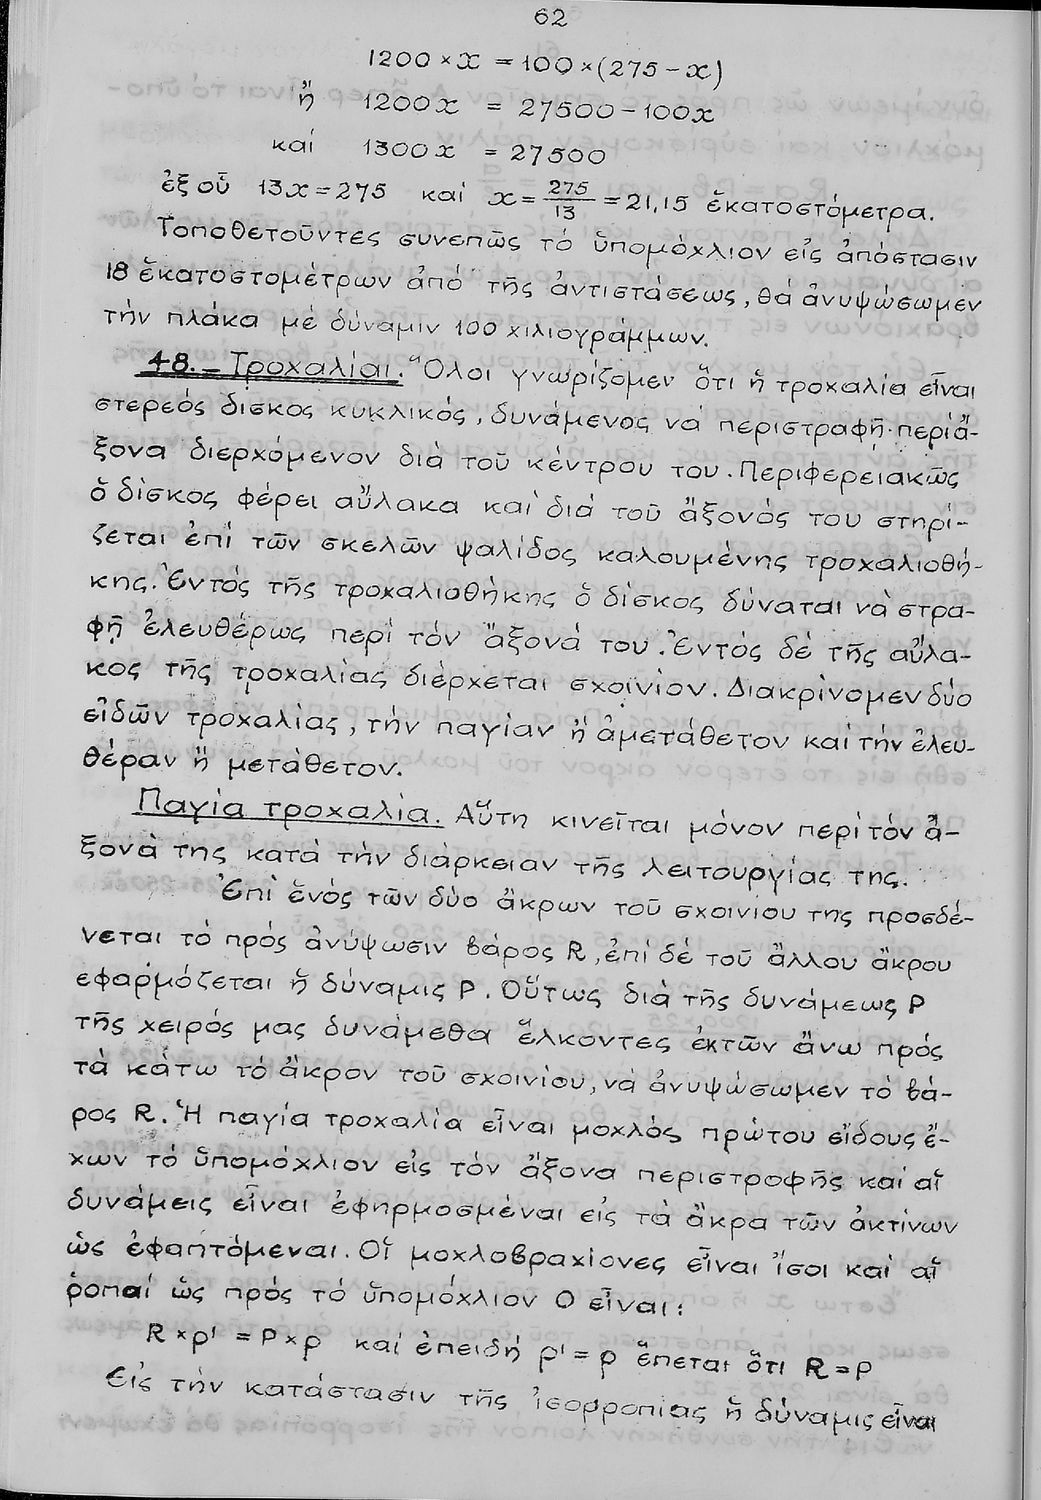 62
1200 × x = 100 × (275 - x)
ἤ 1200x = 27500 - 100x
καί 1300x = 27500
ἐξ οὗ 13x = 275 καί x = 275/13 = 21,15 ἑκατοστόμετρα.
Τοποθετοῦντες συνεπῶς τό ὑπομόχλιον εἰς ἀπόστασιν
18 ἑκατοστομέτρων ἀπό τῆς ἀντιστάσεως, θά ἀνυψώσωμεν
τήν πλάκα μέ δύναμιν 100 χιλιογράμμων.
48.- Τροχαλίαι. Ὅλοι γνωρίζομεν ὅτι ἡ τροχαλία εἶναι
στερεός δίσκος κυκλικός, δυνάμενος νά περιστραφῇ περί ἄ-
ξονα διερχόμενον διά τοῦ κέντρου του. Περιφερειακῶς
ὁ δίσκος φέρει αὔλακα καί διά τοῦ ἄξονός του στηρί-
ζεται ἐπί τῶν σκελῶν ψαλίδος καλουμένης τροχαλιοθή-
κης. Ἐντός τῆς τροχαλιοθήκης ὁ δίσκος δύναται νά στρα-
φῇ ἐλευθέρως περί τόν ἄξονά του. Ἐντός δέ τῆς αὔλα-
κος τῆς τροχαλίας διέρχεται σχοινίον. Διακρίνομεν δύο
εἰδῶν τροχαλίας, τήν παγίαν ἤ ἀμετάθετον καί τήν ἐλευ-
θέραν ἤ μετάθετον.
Παγία τροχαλία. Αὕτη κινεῖται μόνον περί τόν ἄ-
ξονά της κατά τήν διάρκειαν τῆς λειτουργίας της.
Ἐπί ἑνός τῶν δύο ἄκρων τοῦ σχοινίου της προσδέ-
νεται τό πρός ἀνύψωσιν βάρος R, ἐπί δέ τοῦ ἄλλου ἄκρου
εφαρμόζεται ἡ δύναμις P. Οὕτως διά τῆς δυνάμεως P
τῆς χειρός μας δυνάμεθα ἕλκοντες ἐκ τῶν ἄνω πρός
τά κάτω τό ἄκρον τοῦ σχοινίου, νά ἀνυψώσωμεν τό βά-
ρος R. Ἡ παγία τροχαλία εἶναι μοχλός πρώτου εἴδους ἔ-
χων τό ὑπομόχλιον εἰς τόν ἄξονα περιστροφῆς καί αἱ
δυνάμεις εἶναι ἐφηρμοσμέναι εἰς τά ἄκρα τῶν ἀκτίνων
ὡς ἐφαπτόμεναι. Οἱ μοχλοβραχίονες εἶναι ἴσοι καί αἱ
ροπαί ὡς πρός τό ὑπομόχλιον Ο εἶναι:
R × ρ' = P × ρ καί ἐπειδή ρ' = ρ ἕπεται ὅτι R = P
Εἰς τήν κατάστασιν τῆς ἰσορροπίας ἡ δύναμις εἶναι